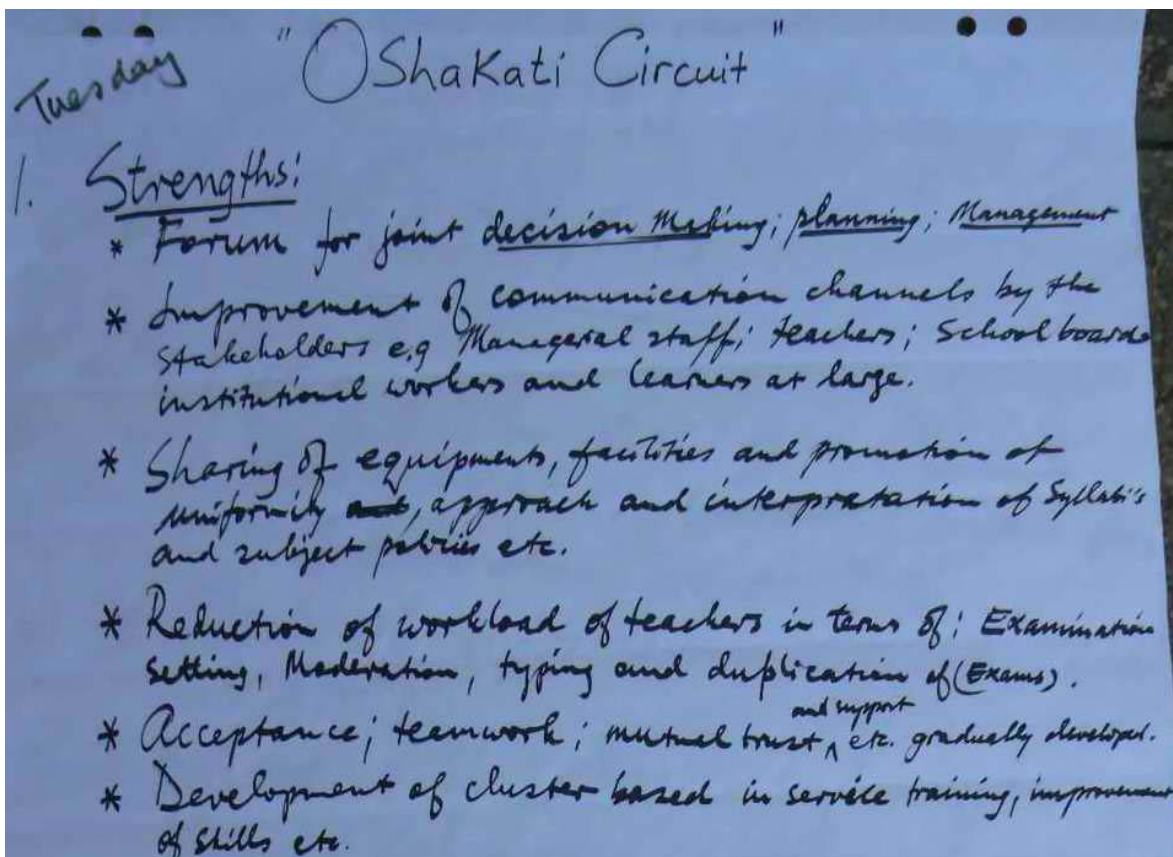 Tuesday "Oshakati Circuit"
1. Strengths:
* Forum for joint decision Making; planning; Management
* Improvement of communication channels by the
stakeholders e.g Managerial staff; teachers; School boards
institutional workers and learners at large.
* Sharing of equipments, facilities and promotion of
uniformity and, approach and interpretation of Syllabi's
and subject policies etc.
* Reduction of workload of teachers in terms of; Examination
setting, Moderation, typing and duplication of (Exams).
* Acceptance; teamwork; mutual trust and support etc. gradually developed.
* Development of cluster based in service training, improvement
of skills etc.